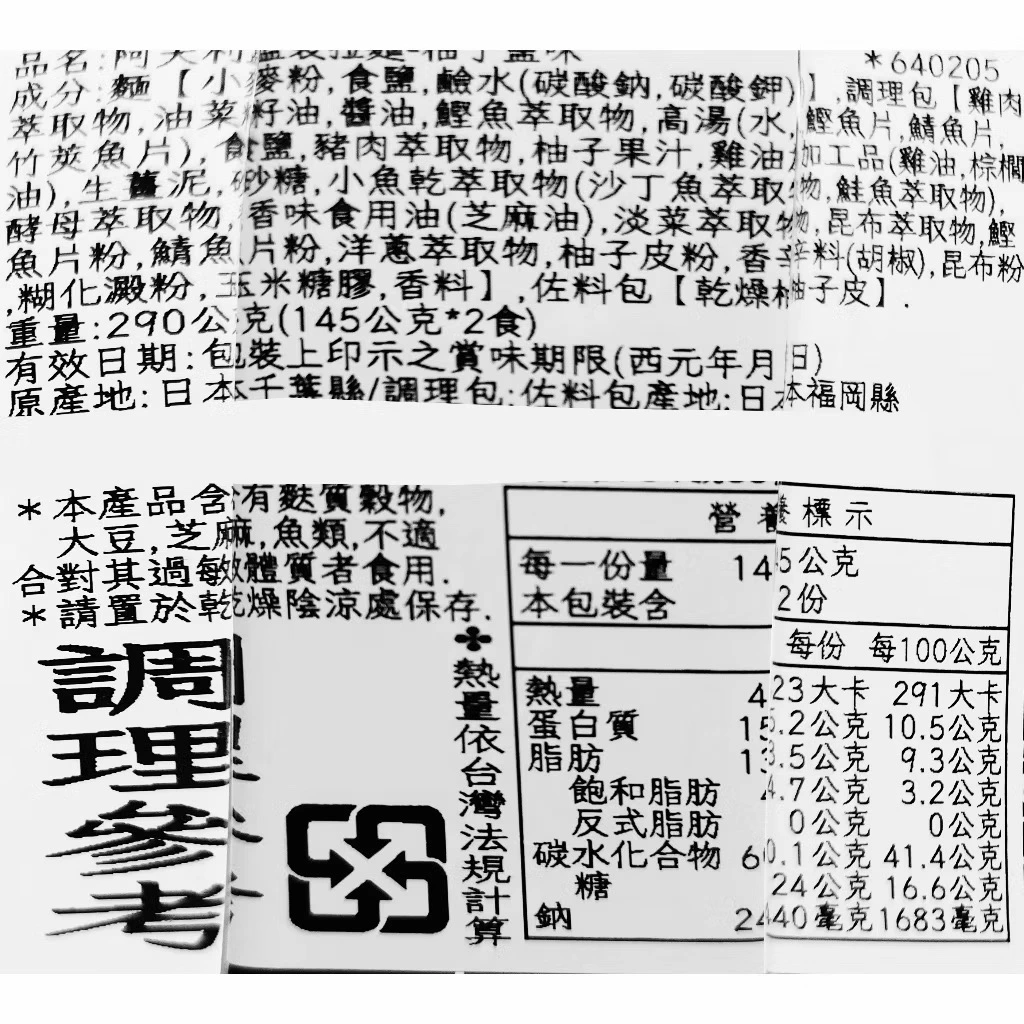 品名:阿夫利 盒裝拉麵-柚子鹽味
*640205
成分:麵【小麥粉,食鹽,鹼水(碳酸鈉,碳酸鉀)】,調理包【雞肉
萃取物,油菜籽油,醬油,鰹魚萃取物,高湯(水,鰹魚片,鯖魚片,
竹莢魚片),食鹽,豬肉萃取物,柚子果汁,雞油加工品(雞油,棕櫚
油),生薑泥,砂糖,小魚乾萃取物(沙丁魚萃取物,鮭魚萃取物),
酵母萃取物,香味食用油(芝麻油),淡菜萃取物,昆布萃取物,鰹
魚片粉,鯖魚片粉,洋蔥萃取物,柚子皮粉,香辛料(胡椒),昆布粉
,糊化澱粉,玉米糖膠,香料】,佐料包【乾燥柚子皮】.
重量:290公克(145公克*2食)
有效日期:包裝上印示之賞味期限(西元年月日)
原產地:日本千葉縣/調理包:佐料包產地:日本福岡縣
*本產品含有麩質穀物,
大豆,芝麻,魚類,不適
合對其過敏體質者食用.
*請置於乾燥陰涼處保存.
調理參考
熱量依台灣法規計算
營養標示
每一份量 145公克
本包裝含 2份
每份 每100公克
熱量 423大卡 291大卡
蛋白質 15.2公克 10.5公克
脂肪 13.5公克 9.3公克
飽和脂肪 4.7公克 3.2公克
反式脂肪 0公克 0公克
碳水化合物 60.1公克 41.4公克
糖 24公克 16.6公克
鈉 2440毫克 1683毫克